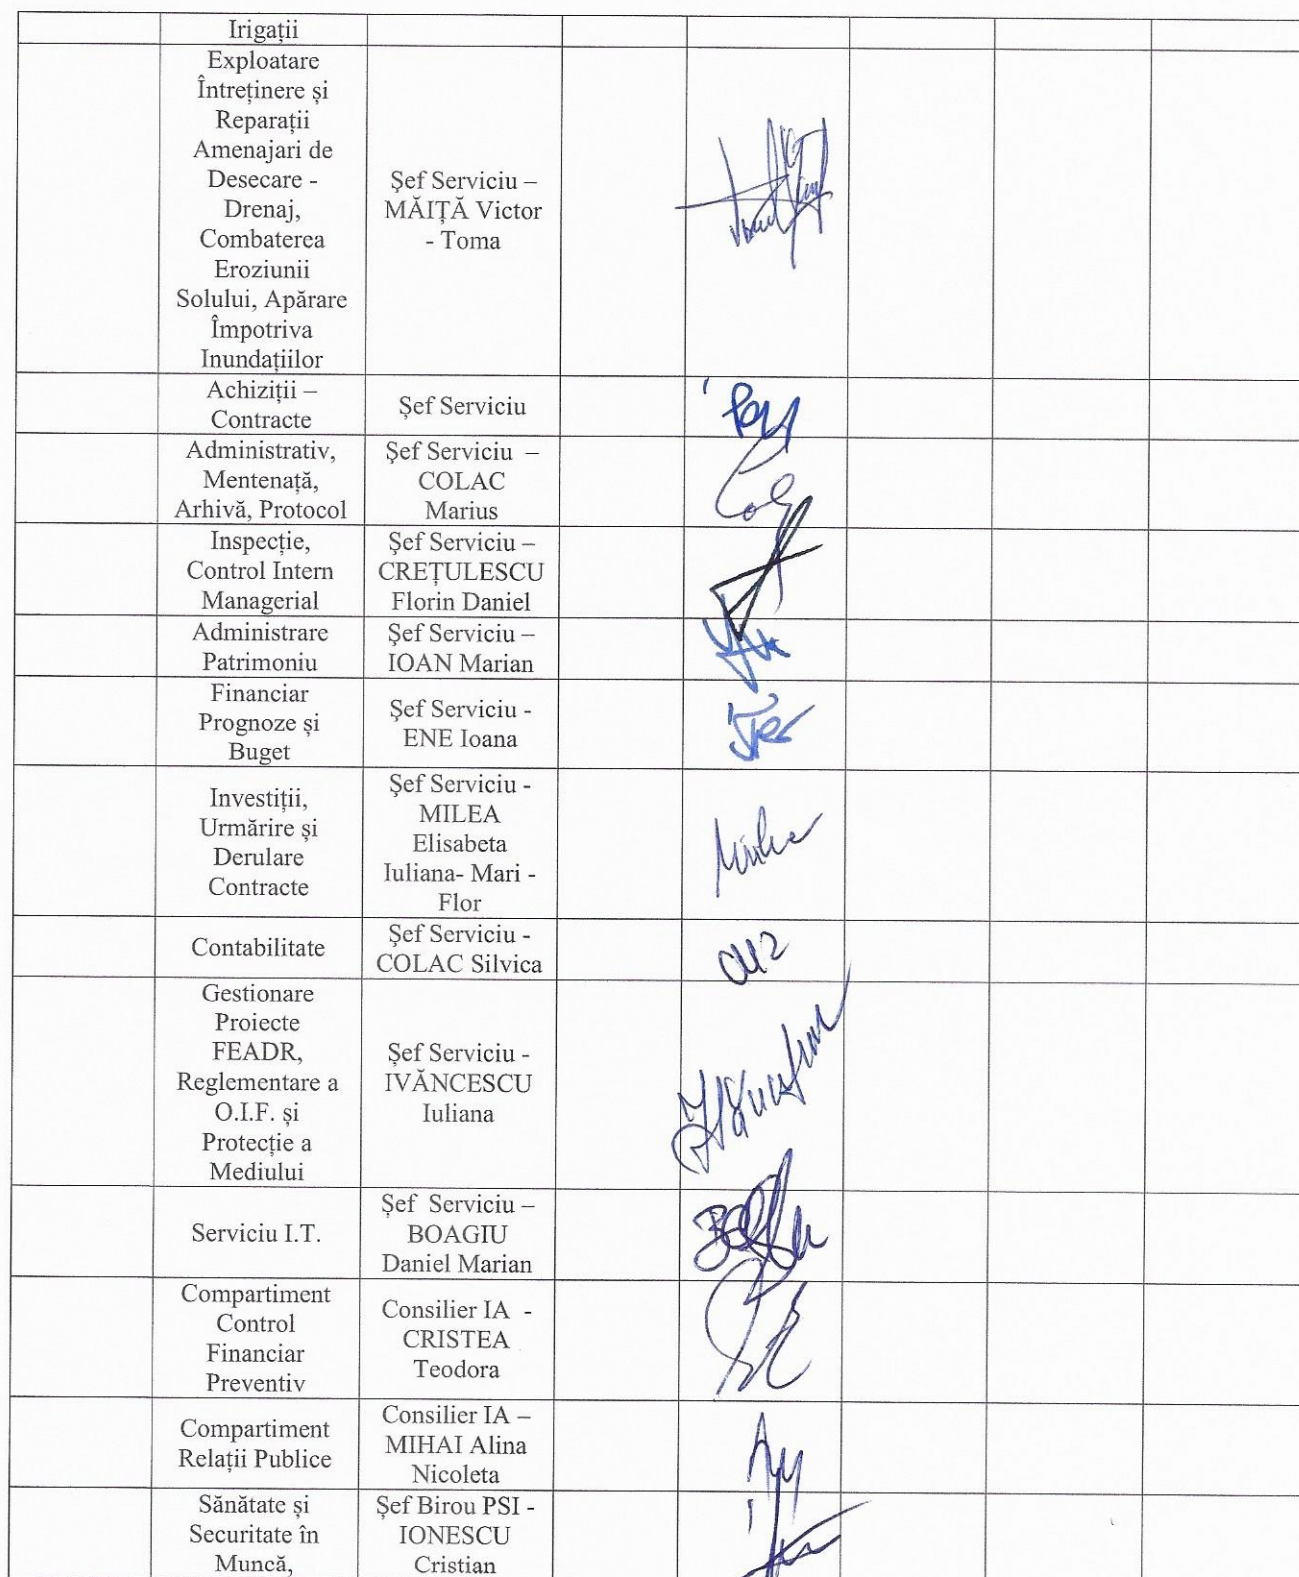 Irigații
Exploatare
Întreținere și
Reparații
Amenajari de
Desecare -
Drenaj,
Combaterea
Eroziunii
Solului, Apărare
Împotriva
Inundațiilor
Șef Serviciu –
MĂIȚĂ Victor
- Toma
Achiziții –
Contracte
Șef Serviciu
Administrativ,
Mentenață,
Arhivă, Protocol
Șef Serviciu –
COLAC
Marius
Inspecție,
Control Intern
Managerial
Șef Serviciu –
CREȚULESCU
Florin Daniel
Administrare
Patrimoniu
Șef Serviciu –
IOAN Marian
Financiar
Prognoze și
Buget
Șef Serviciu -
ENE Ioana
Investiții,
Urmărire și
Derulare
Contracte
Șef Serviciu -
MILEA
Elisabeta
Iuliana- Mari -
Flor
Contabilitate
Șef Serviciu -
COLAC Silvica
Gestionare
Proiecte
FEADR,
Reglementare a
O.I.F. și
Protecție a
Mediului
Șef Serviciu -
IVĂNCESCU
Iuliana
Serviciu I.T.
Șef Serviciu –
BOAGIU
Daniel Marian
Compartiment
Control
Financiar
Preventiv
Consilier IA -
CRISTEA
Teodora
Compartiment
Relații Publice
Consilier IA –
MIHAI Alina
Nicoleta
Sănătate și
Securitate în
Muncă,
Șef Birou PSI -
IONESCU
Cristian